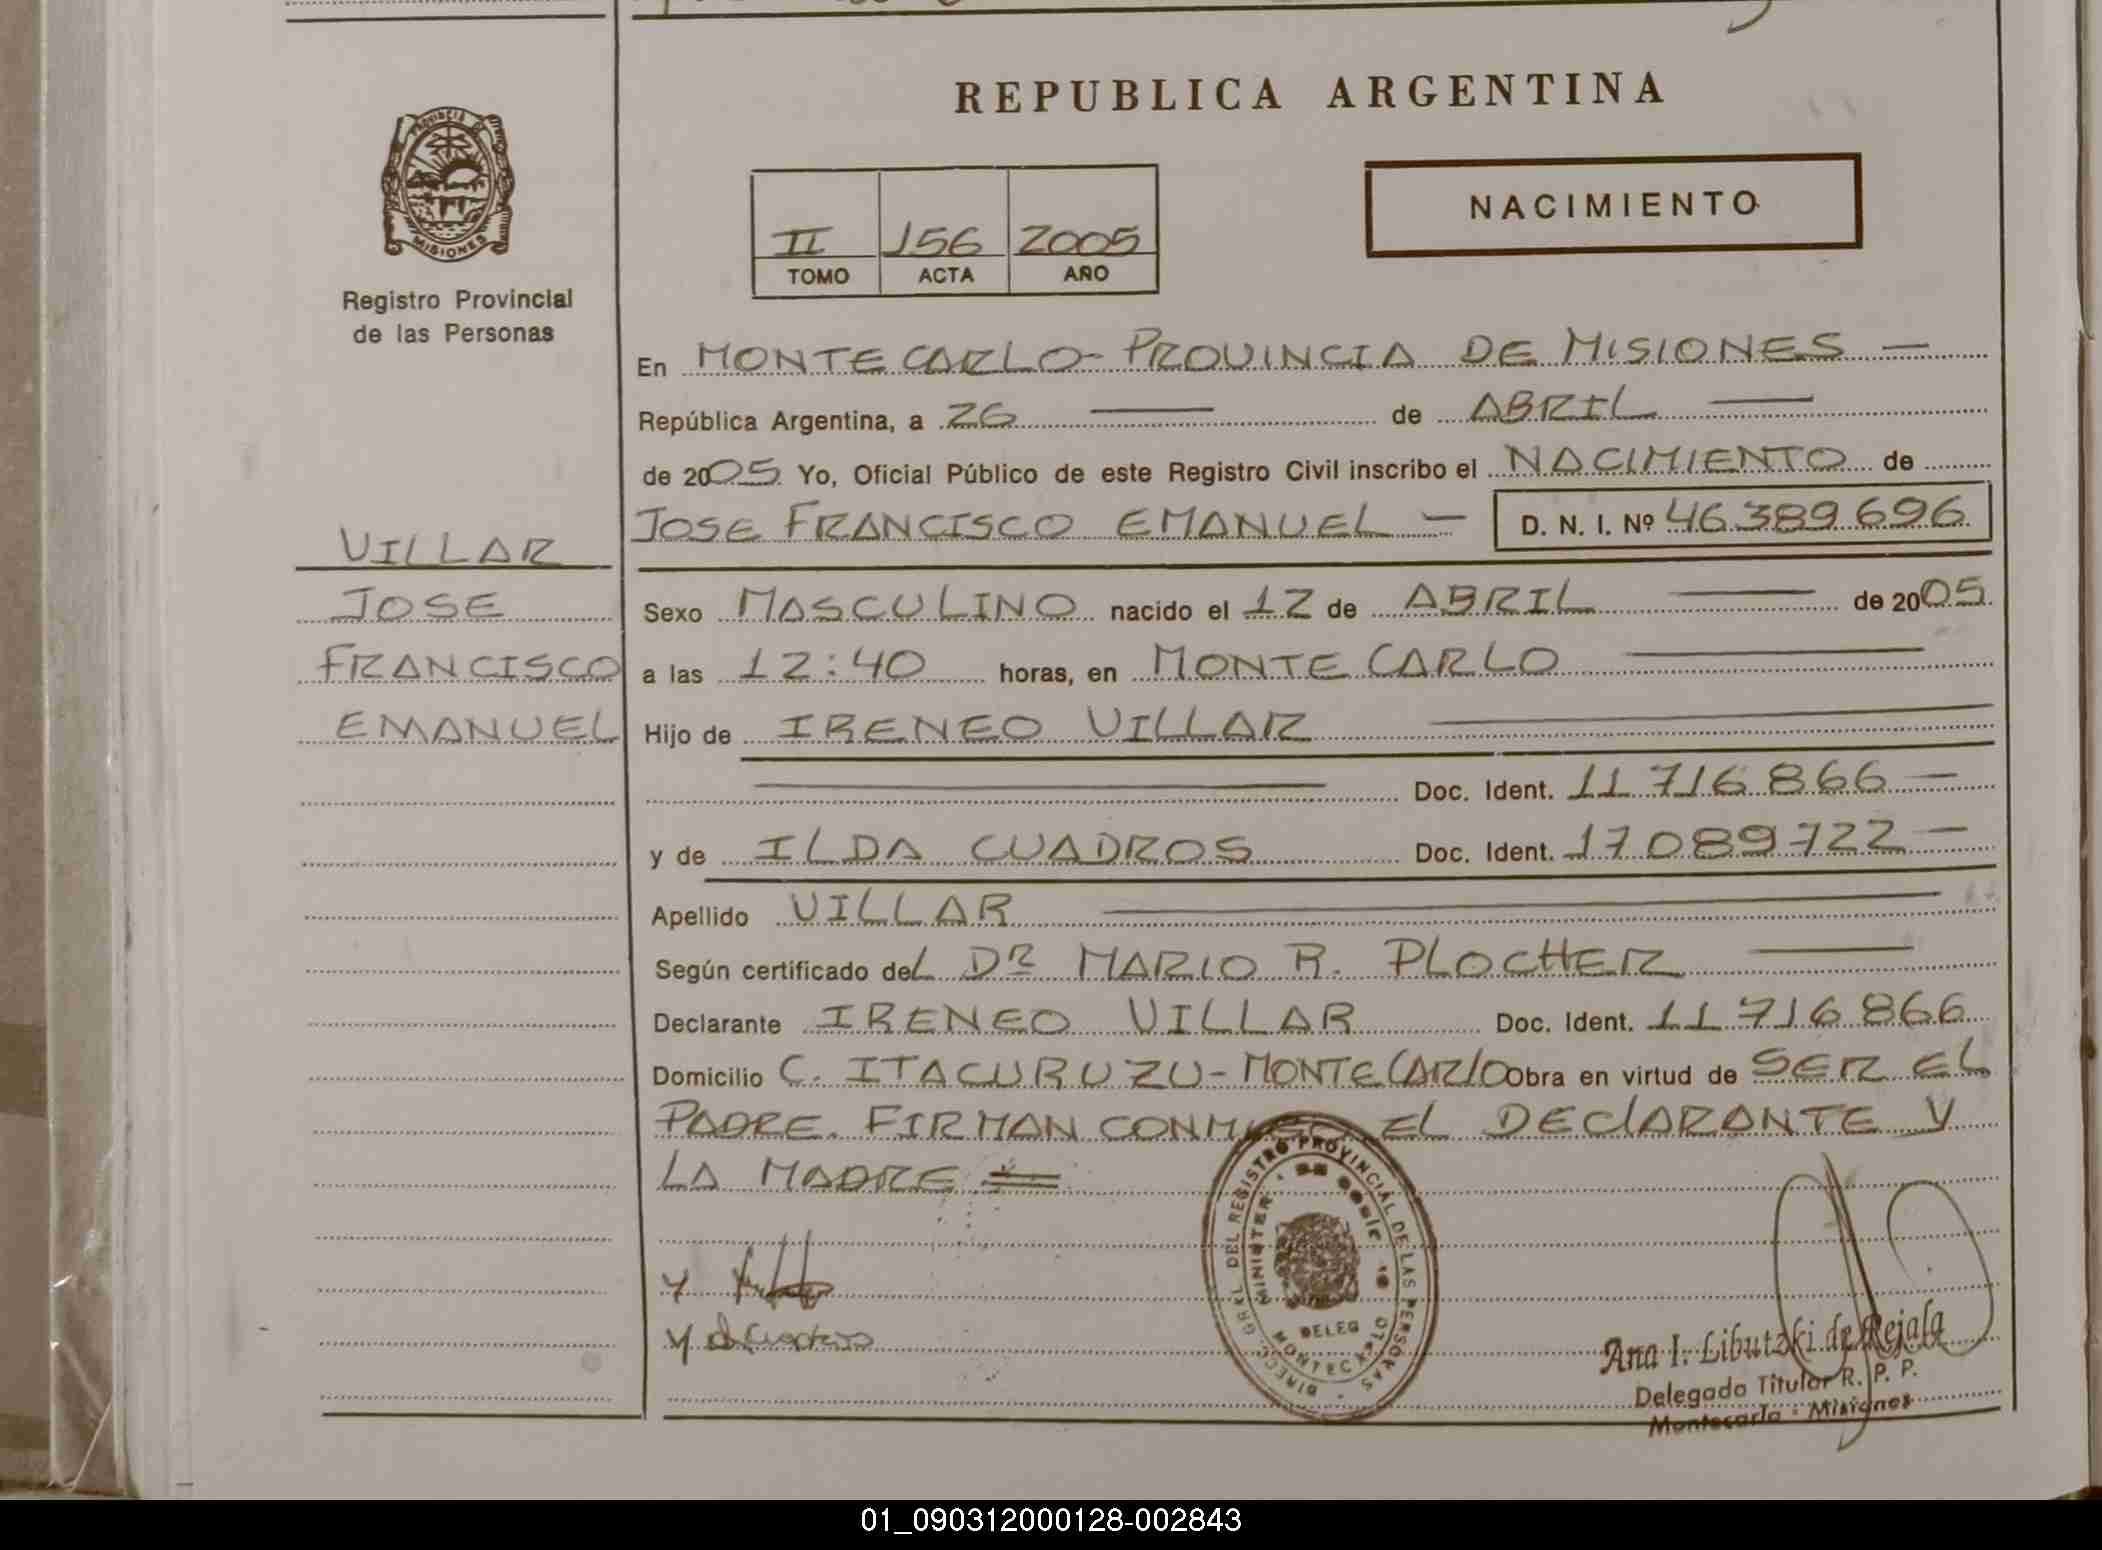 REPUBLICA ARGENTINA
PROVINCIA DE
MISIONES
Registro Provincial
de las Personas
NACIMIENTO
II 156 2005
TOMO ACTA AÑO
En MONTECARLO - PROVINCIA DE MISIONES —
República Argentina, a 26 — de ABRIL —
de 2005 Yo, Oficial Público de este Registro Civil inscribo el NACIMIENTO de
JOSE FRANCISCO EMANUEL — D. N. I. Nº 46.389.696
VILLAR
JOSE
FRANCISCO
EMANUEL
Sexo MASCULINO nacido el 12 de ABRIL — de 2005
a las 12:40 horas, en MONTECARLO —
Hijo de IRENEO VILLAR —
— Doc. Ident. 11.716.866 —
y de ILDA CUADROS Doc. Ident. 17.089.722 —
Apellido VILLAR —
Según certificado del DR MARIO R. PLOCHER —
Declarante IRENEO VILLAR Doc. Ident. 11.716.866
Domicilio C. ITACURUZU - MONTECARLO Obra en virtud de SER EL
PADRE. FIRMAN CONMIGO EL DECLARANTE Y
LA MADRE =
DIRECC. GRAL. DEL REGISTRO PROVINCIAL DE LAS PERSONAS
MINISTER
DELEG
MONTECARLO
Ana I. Libutzki de Rejala
Delegada Titular R. P. P.
Montecarlo - Misiones
01_090312000128-002843